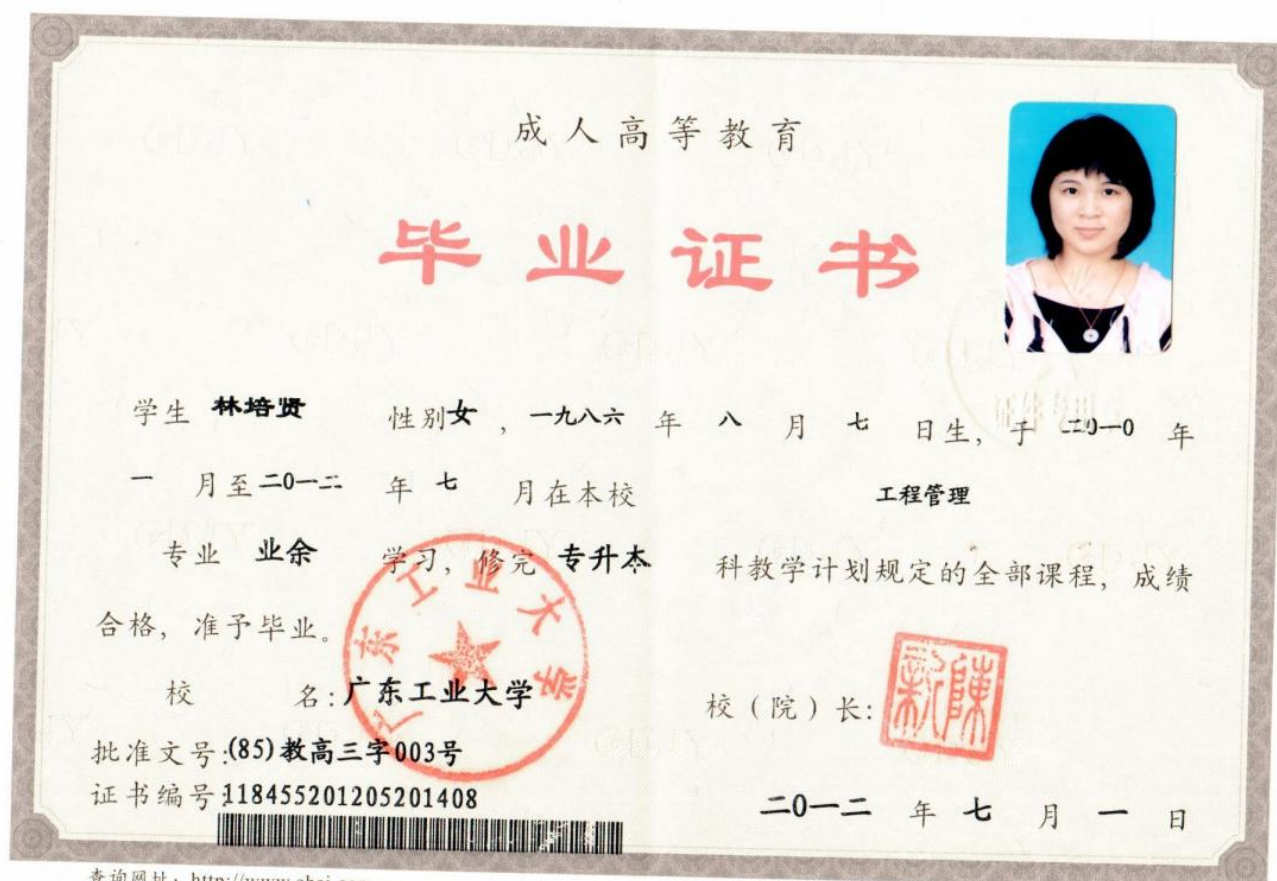 成人高等教育
毕业证书
学生 林培贤 性别女，一九八六 年 八 月 七 日生，于 二0一0 年
一 月至二0一二 年 七 月在本校 工程管理
专业 业余 学习，修完 专升本 科教学计划规定的全部课程，成绩
合格，准予毕业。
校 名：广东工业大学
校（院）长：
批准文号：(85)教高三字003号
证书编号：118455201205201408
二0一二 年 七 月 一 日
广东工业大学
陳新